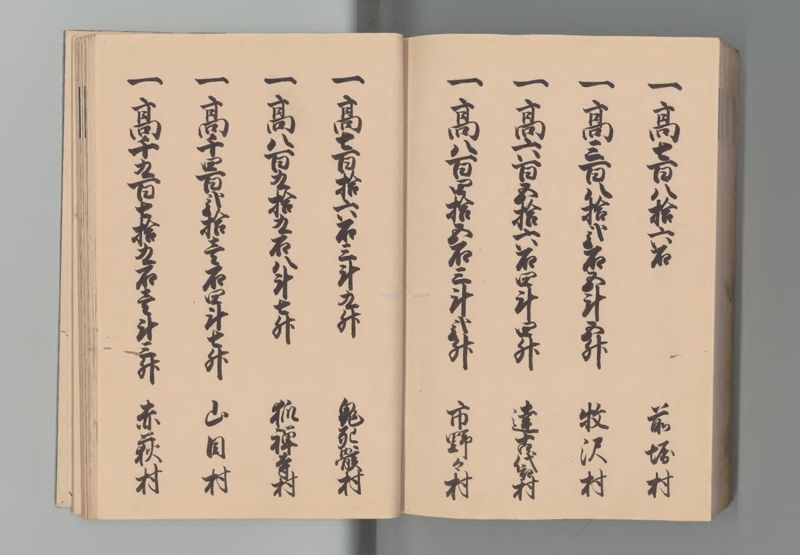 一 高七百八拾六石 前堀村
一 高三百八拾弐石五斗五升 牧沢村
一 高六百五拾六石四斗四升 達古袋村
一 高八百四拾五石三斗弐升 市野々村
一 高七百拾六石三斗九升 鬼死骸村
一 高八百九拾九石八斗七升 狐禅寺村
一 高千四百弐拾壱石四斗七升 山目村
一 高千九百七拾九石壱斗三升 赤荻村